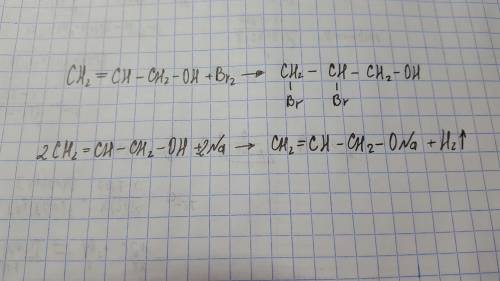 CH₂ = CH - CH₂ - OH + Br₂ → CH₂ - CH - CH₂ - OH
Br Br
2CH₂ = CH - CH₂ - OH + 2Na → CH₂ = CH - CH₂ - ONa + H₂↑